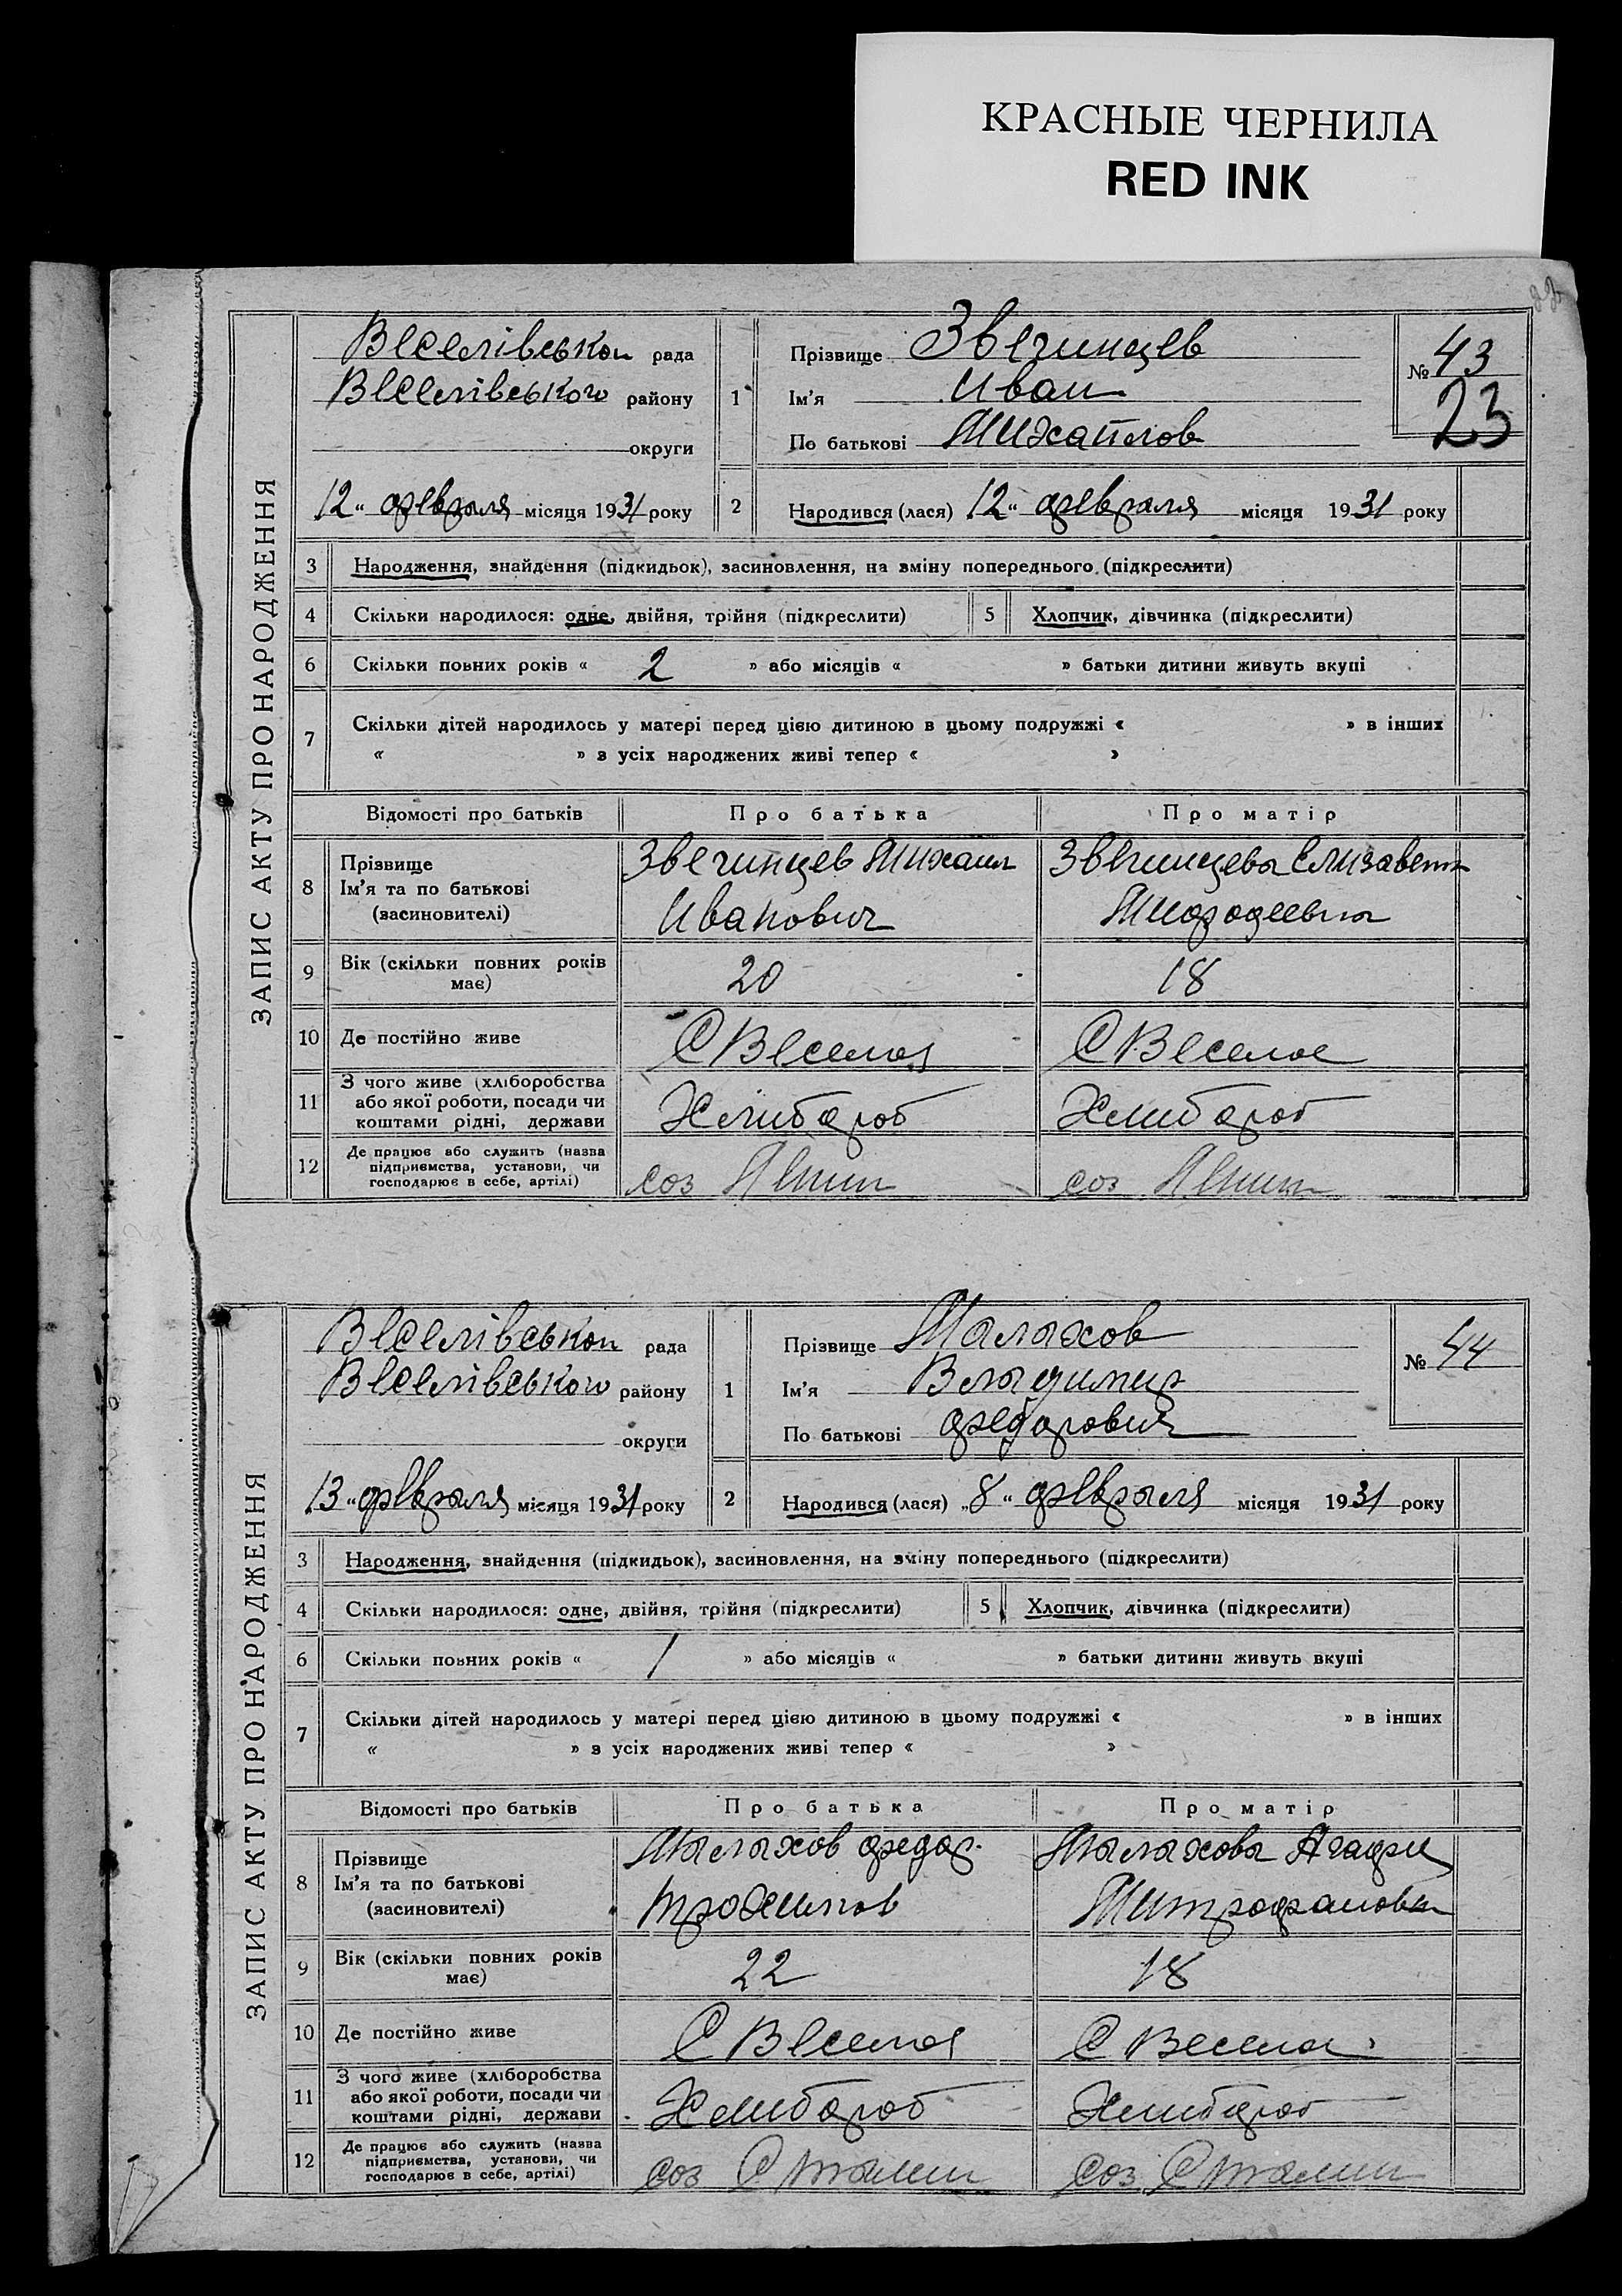 КРАСНЫЕ ЧЕРНИЛА
RED INK
ЗАПИС АКТУ ПРО НАРОДЖЕННЯ
Веселівськои рада
Веселівського району
округи
12 " февраля місяця 1931 року
1
Прізвище Звегинцев
Ім'я Иван
По батькові Михайлов
№ 43
23
2
Народився (лася) 12 " февраля місяця 1931 року
3 Народження, знайдення (підкидьок), засиновлення, на зміну попереднього (підкреслити)
4 Скільки народилося: одне, двійня, трійня (підкреслити) 5 Хлопчик, дівчинка (підкреслити)
6 Скільки повних років « 2 » або місяців « » батьки дитини живуть вкупі
7 Скільки дітей народилось у матері перед цією дитиною в цьому подружжі « » в інших
« » з усіх народжених живі тепер « »
Відомості про батьків Про батька Про матір
8 Прізвище
Ім'я та по батькові
(засиновителі)
Звегинцев Михаил
Иванович
Звегинцева Елизавета
9 Вік (скільки повних років
має)
20 18
10 Де постійно живе С Веселоя С Веселое
11 З чого живе (хліборобства
або якої роботи, посади чи
коштами рідні, держави
Хлибороб Хлибороб
12 Де працює або служить (назва
підприємства, установи, чи
господарює в себе, артілі)
соз Ленин соз Ленин
ЗАПИС АКТУ ПРО НАРОДЖЕННЯ
Веселівськои рада
Веселівського району
округи
13 " февраля місяця 1931 року
1
Прізвище Малахов
Ім'я Владимир
По батькові Федорович
№ 44
2
Народився (лася) „ 8 " февраля місяця 1931 року
3 Народження, знайдення (підкидьок), засиновлення, на зміну попереднього (підкреслити)
4 Скільки народилося: одне, двійня, трійня (підкреслити) 5 Хлопчик, дівчинка (підкреслити)
6 Скільки повних років « 1 » або місяців « » батьки дитини живуть вкупі
7 Скільки дітей народилось у матері перед цією дитиною в цьому подружжі « » в інших
« » з усіх народжених живі тепер « »
Відомості про батьків Про батька Про матір
8 Прізвище
Ім'я та по батькові
(засиновителі)
Малахов Федор.
Малахова
Митрофановн
9 Вік (скільки повних років
має)
22 18
10 Де постійно живе С Веселоя С Веселое
11 З чого живе (хліборобства
або якої роботи, посади чи
коштами рідні, держави
Хлибороб Хлибороб
12 Де працює або служить (назва
підприємства, установи, чи
господарює в себе, артілі)
соз Сталин соз Сталин